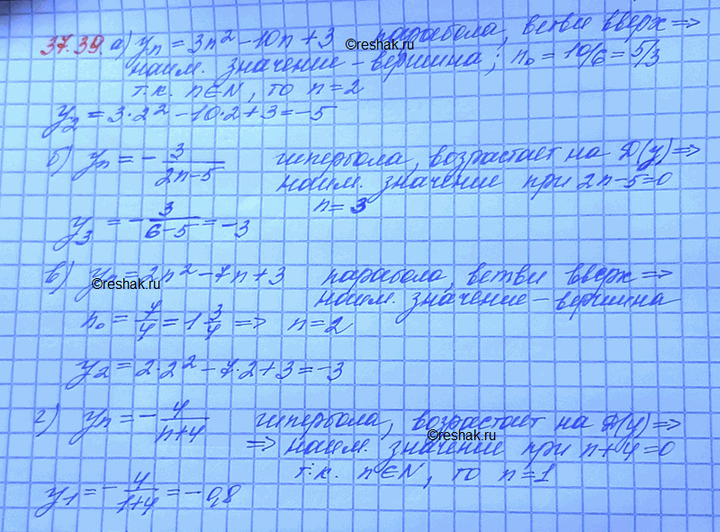 37.39. а) yₙ = 3n² - 10n + 3 парабола, ветви вверх ⇒
©reshak.ru
наим. значение - вершина; n₀ = 10/6 = 5/3
т.к. n∈N, то n = 2
y₂ = 3·2² - 10·2 + 3 = -5
б) yₙ = - 3/(2n-5) гипербола, возрастает на D(y) ⇒
наим. значение при 2n-5=0
n = 3
y₃ = - 3/(6-5) = -3
в) yₙ = 2n² - 7n + 3 парабола, ветви вверх ⇒
©reshak.ru
наим. значение - вершина
n₀ = 7/4 = 1 3/4 ⇒ n = 2
y₂ = 2·2² - 7·2 + 3 = -3
г) yₙ = - 4/(n+4) гипербола, возрастает на D(y) ⇒
©reshak.ru
⇒ наим. значение при n+4=0
т.к. n∈N, то n = 1
y₁ = - 4/(1+4) = -0,8